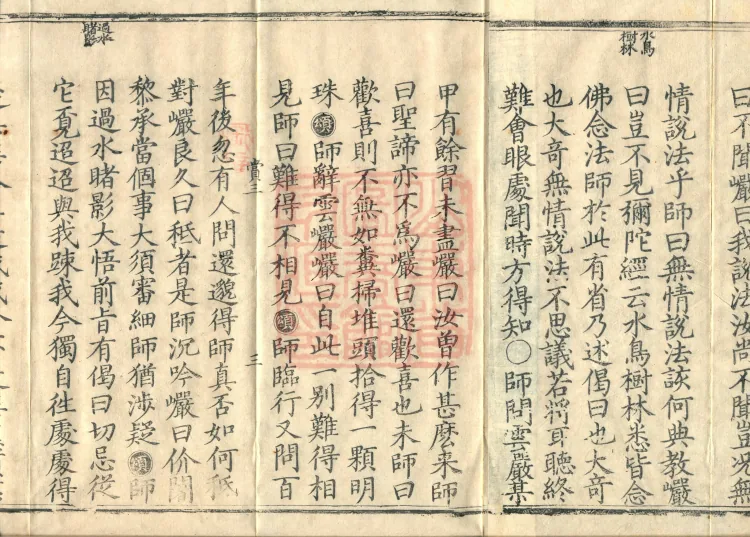 水鳥
樹林
過水
睹影
曰不聞嚴曰我說法汝尚不聞豈況無
情說法乎師曰無情說法該何典教嚴
曰豈不見彌陀經云水鳥樹林悉皆念
佛念法師於此有省乃述偈曰也大奇
也大奇無情說法不思議若將耳聽終
難會眼處聞時方得知〇師問雲嚴某
甲有餘習未盡巖曰汝曾作甚麼來師
曰聖諦亦不為巖曰還歡喜也未師曰
歡喜則不無如糞掃堆頭拾得一顆明
珠頌師辭雲巖巖曰自此一別難得相
見師曰難得不相見頌師臨行又問百
賞三 三
年後忽有人問還邈得師真否如何秪
對巖良久曰秪者是師沉吟巖曰价闍
黎承當個事大須審細師猶涉疑頌師
因過水睹影大悟前旨有偈曰切忌從
它覓迢迢與我踈我今獨自徃處處得